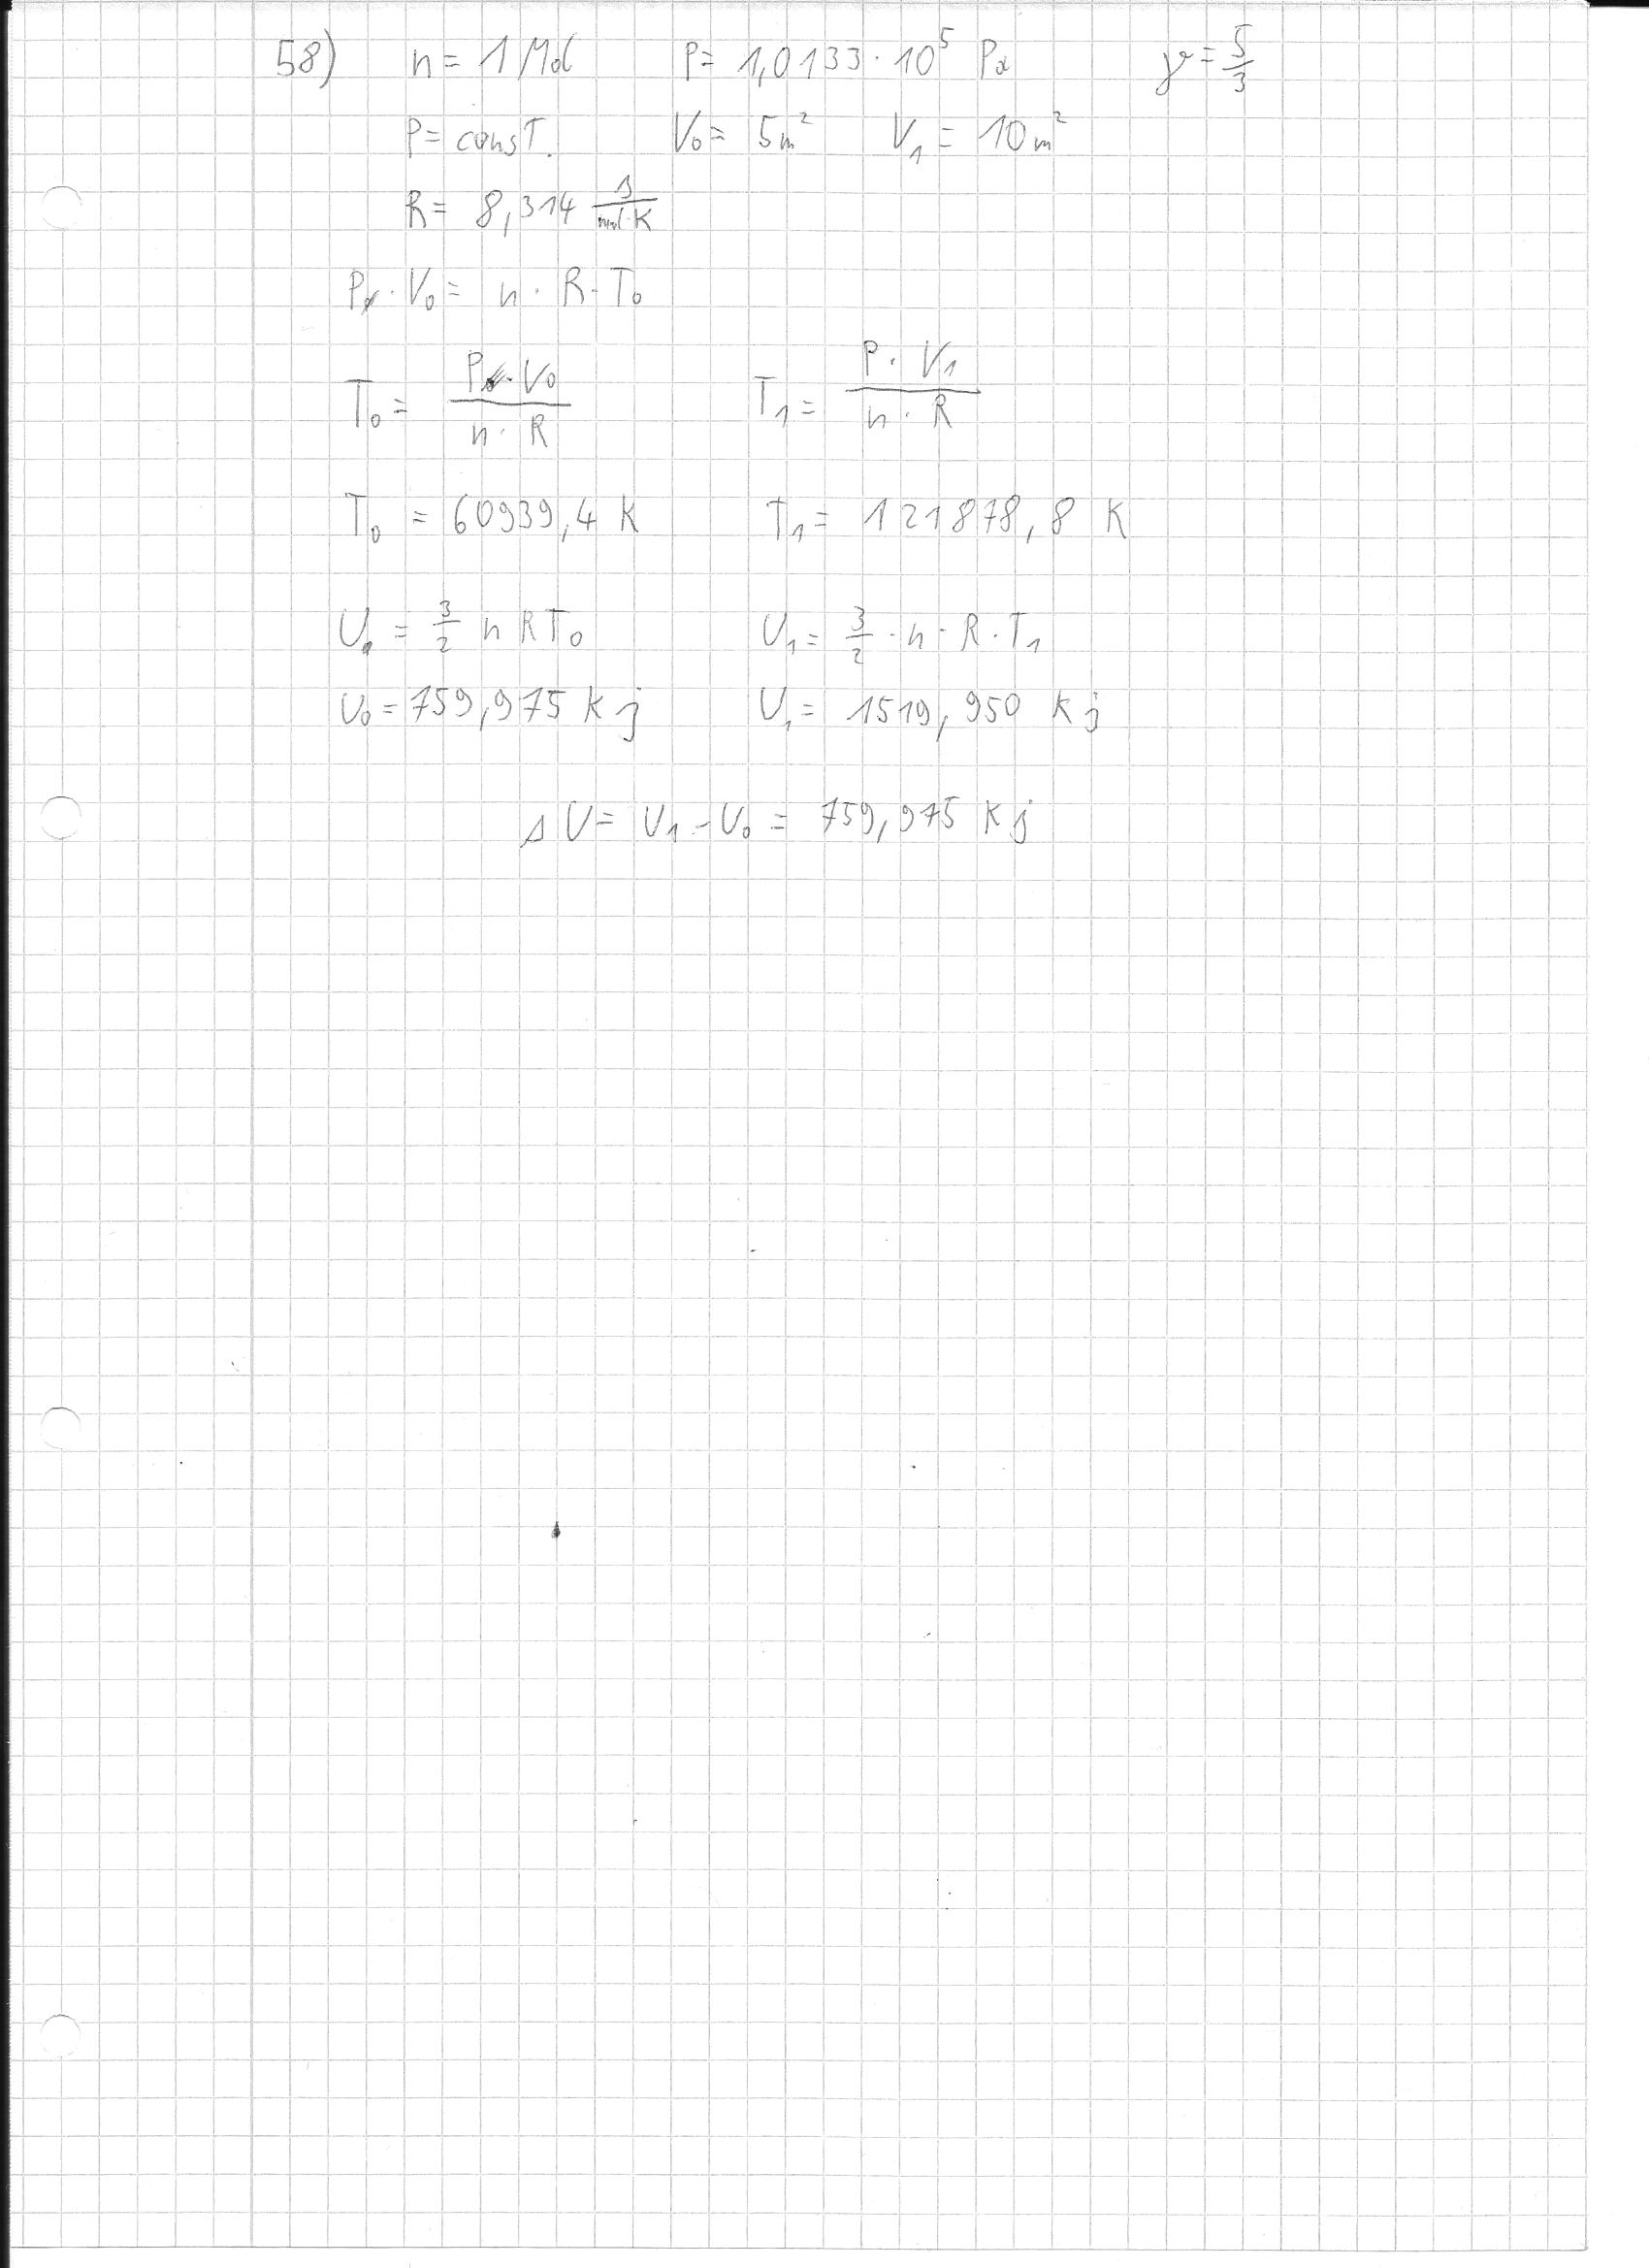 58) n = 1 Mol P = 1,0133 · 10⁵ Pa γ = 5/3
P = const. V₀ = 5m² V₁ = 10m²
R = 8,314 J/mol·K
P · V₀ = n · R · T₀
T₀ = P · V₀ / n · R T₁ = P · V₁ / n · R
T₀ = 60939,4 K T₁ = 121878,8 K
U₀ = 3/2 n R T₀ U₁ = 3/2 · n · R · T₁
U₀ = 759,975 Kj U₁ = 1519,950 Kj
Δ U = U₁ - U₀ = 759,975 Kj